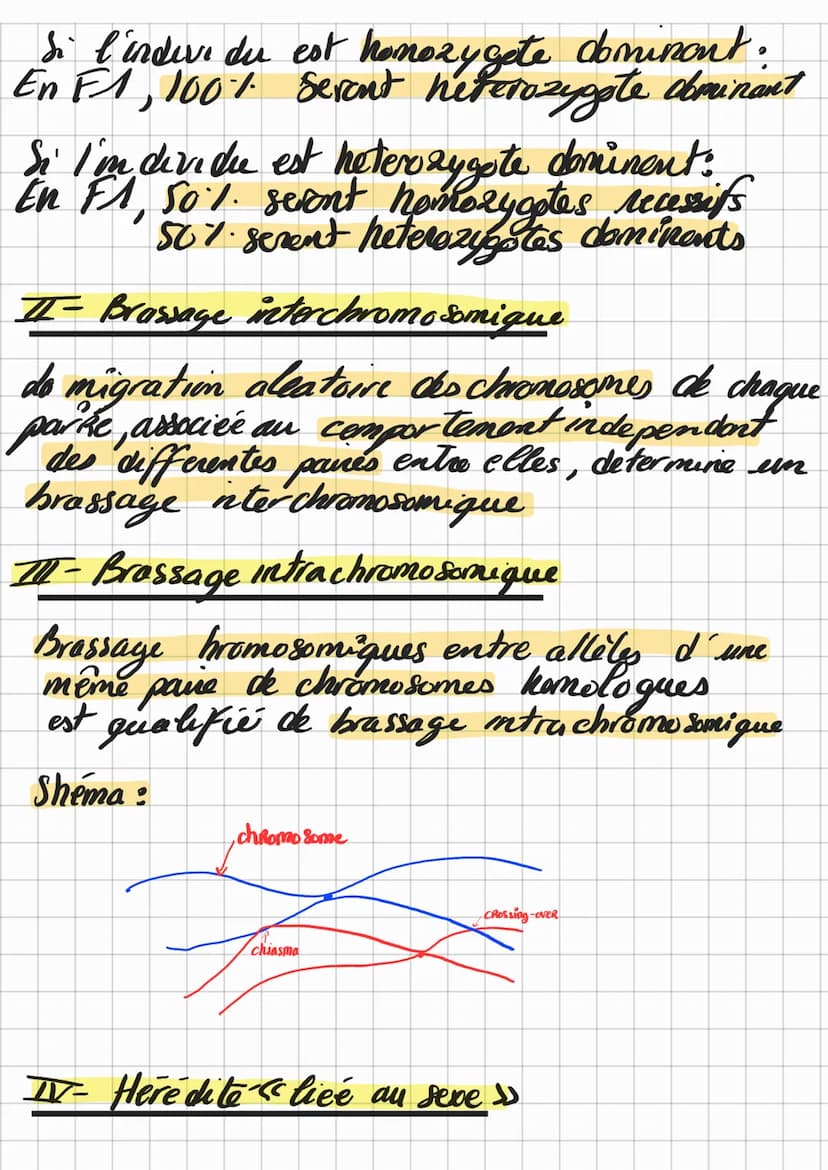 Si l'individu est homozygote dominant :
En F1, 100% seront heterozygote dominant
Si l'individu est heterozygote dominant :
En F1, 50% seront homozygotes recessifs
50% seront heterozygotes dominants
II - Brassage interchromosomique
da migration aleatoire des chromosomes de chaque
paire, associée au comportement independant
des differentes paires entre elles, determine un
brassage interchromosomique
III - Brassage intrachromosomique
Brassage hromosomiques entre allèles d'une
même paire de chromosomes homologues
est qualifié de brassage intrachromosomique
Shéma :
chromosome
crossing-over
chiasma
IV - Hérédité « lieé au sexe »